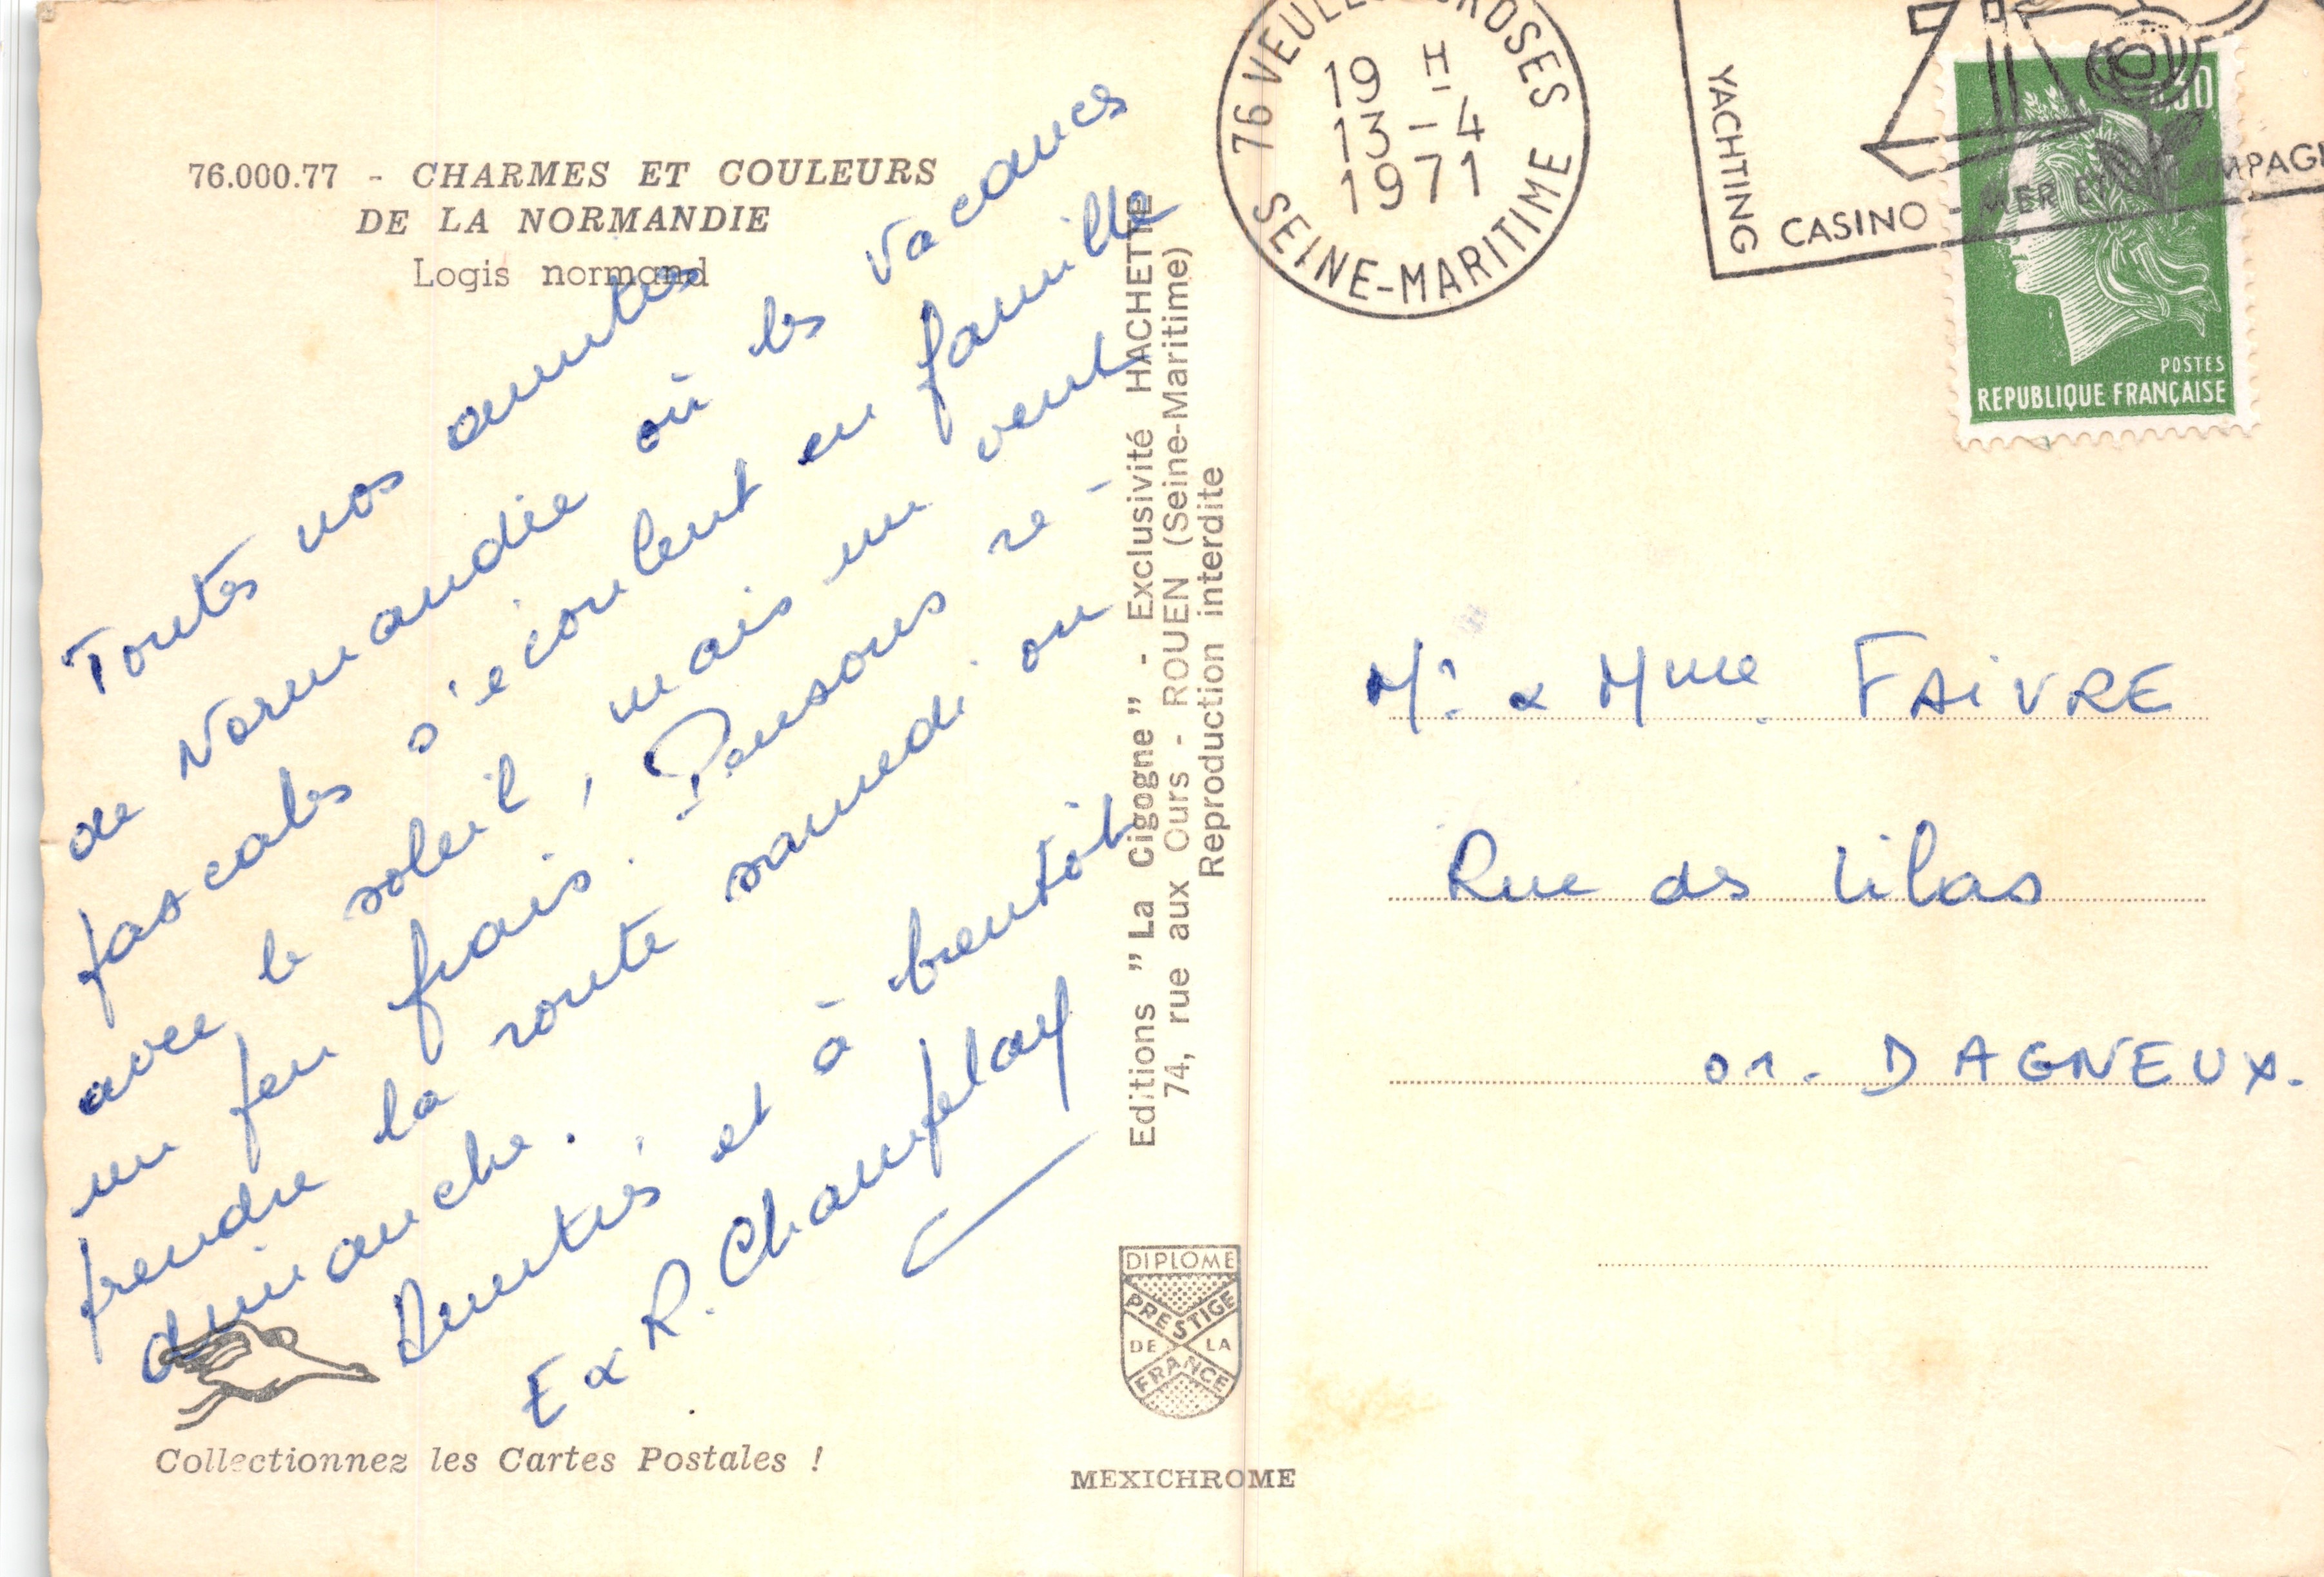 76.000.77 - CHARMES ET COULEURS
DE LA NORMANDIE
Logis normand
Toutes nos amitiés
de Normandie où les vacances
pascales s'écoulent en famille
avec le soleil, mais un vent
un peu frais. Pensons re-
prendre la route samedi ou
dimanche.
Amitiés et à bientôt
E & R. Champlay
Collectionnez les Cartes Postales !
Editions "La Cigogne" - Exclusivité HACHETTE
74, rue aux Ours - ROUEN (Seine-Maritime)
Reproduction interdite
DIPLOME
PRESTIGE
DE LA
FRANCE
MEXICHROME
76 VEULES ROSES
19 H
13-4
1971
SEINE-MARITIME
YACHTING
CASINO - MER ET
POSTES
REPUBLIQUE FRANÇAISE
Mr & Mme FAIVRE
Rue des Lilas
01. DAGNEUX.